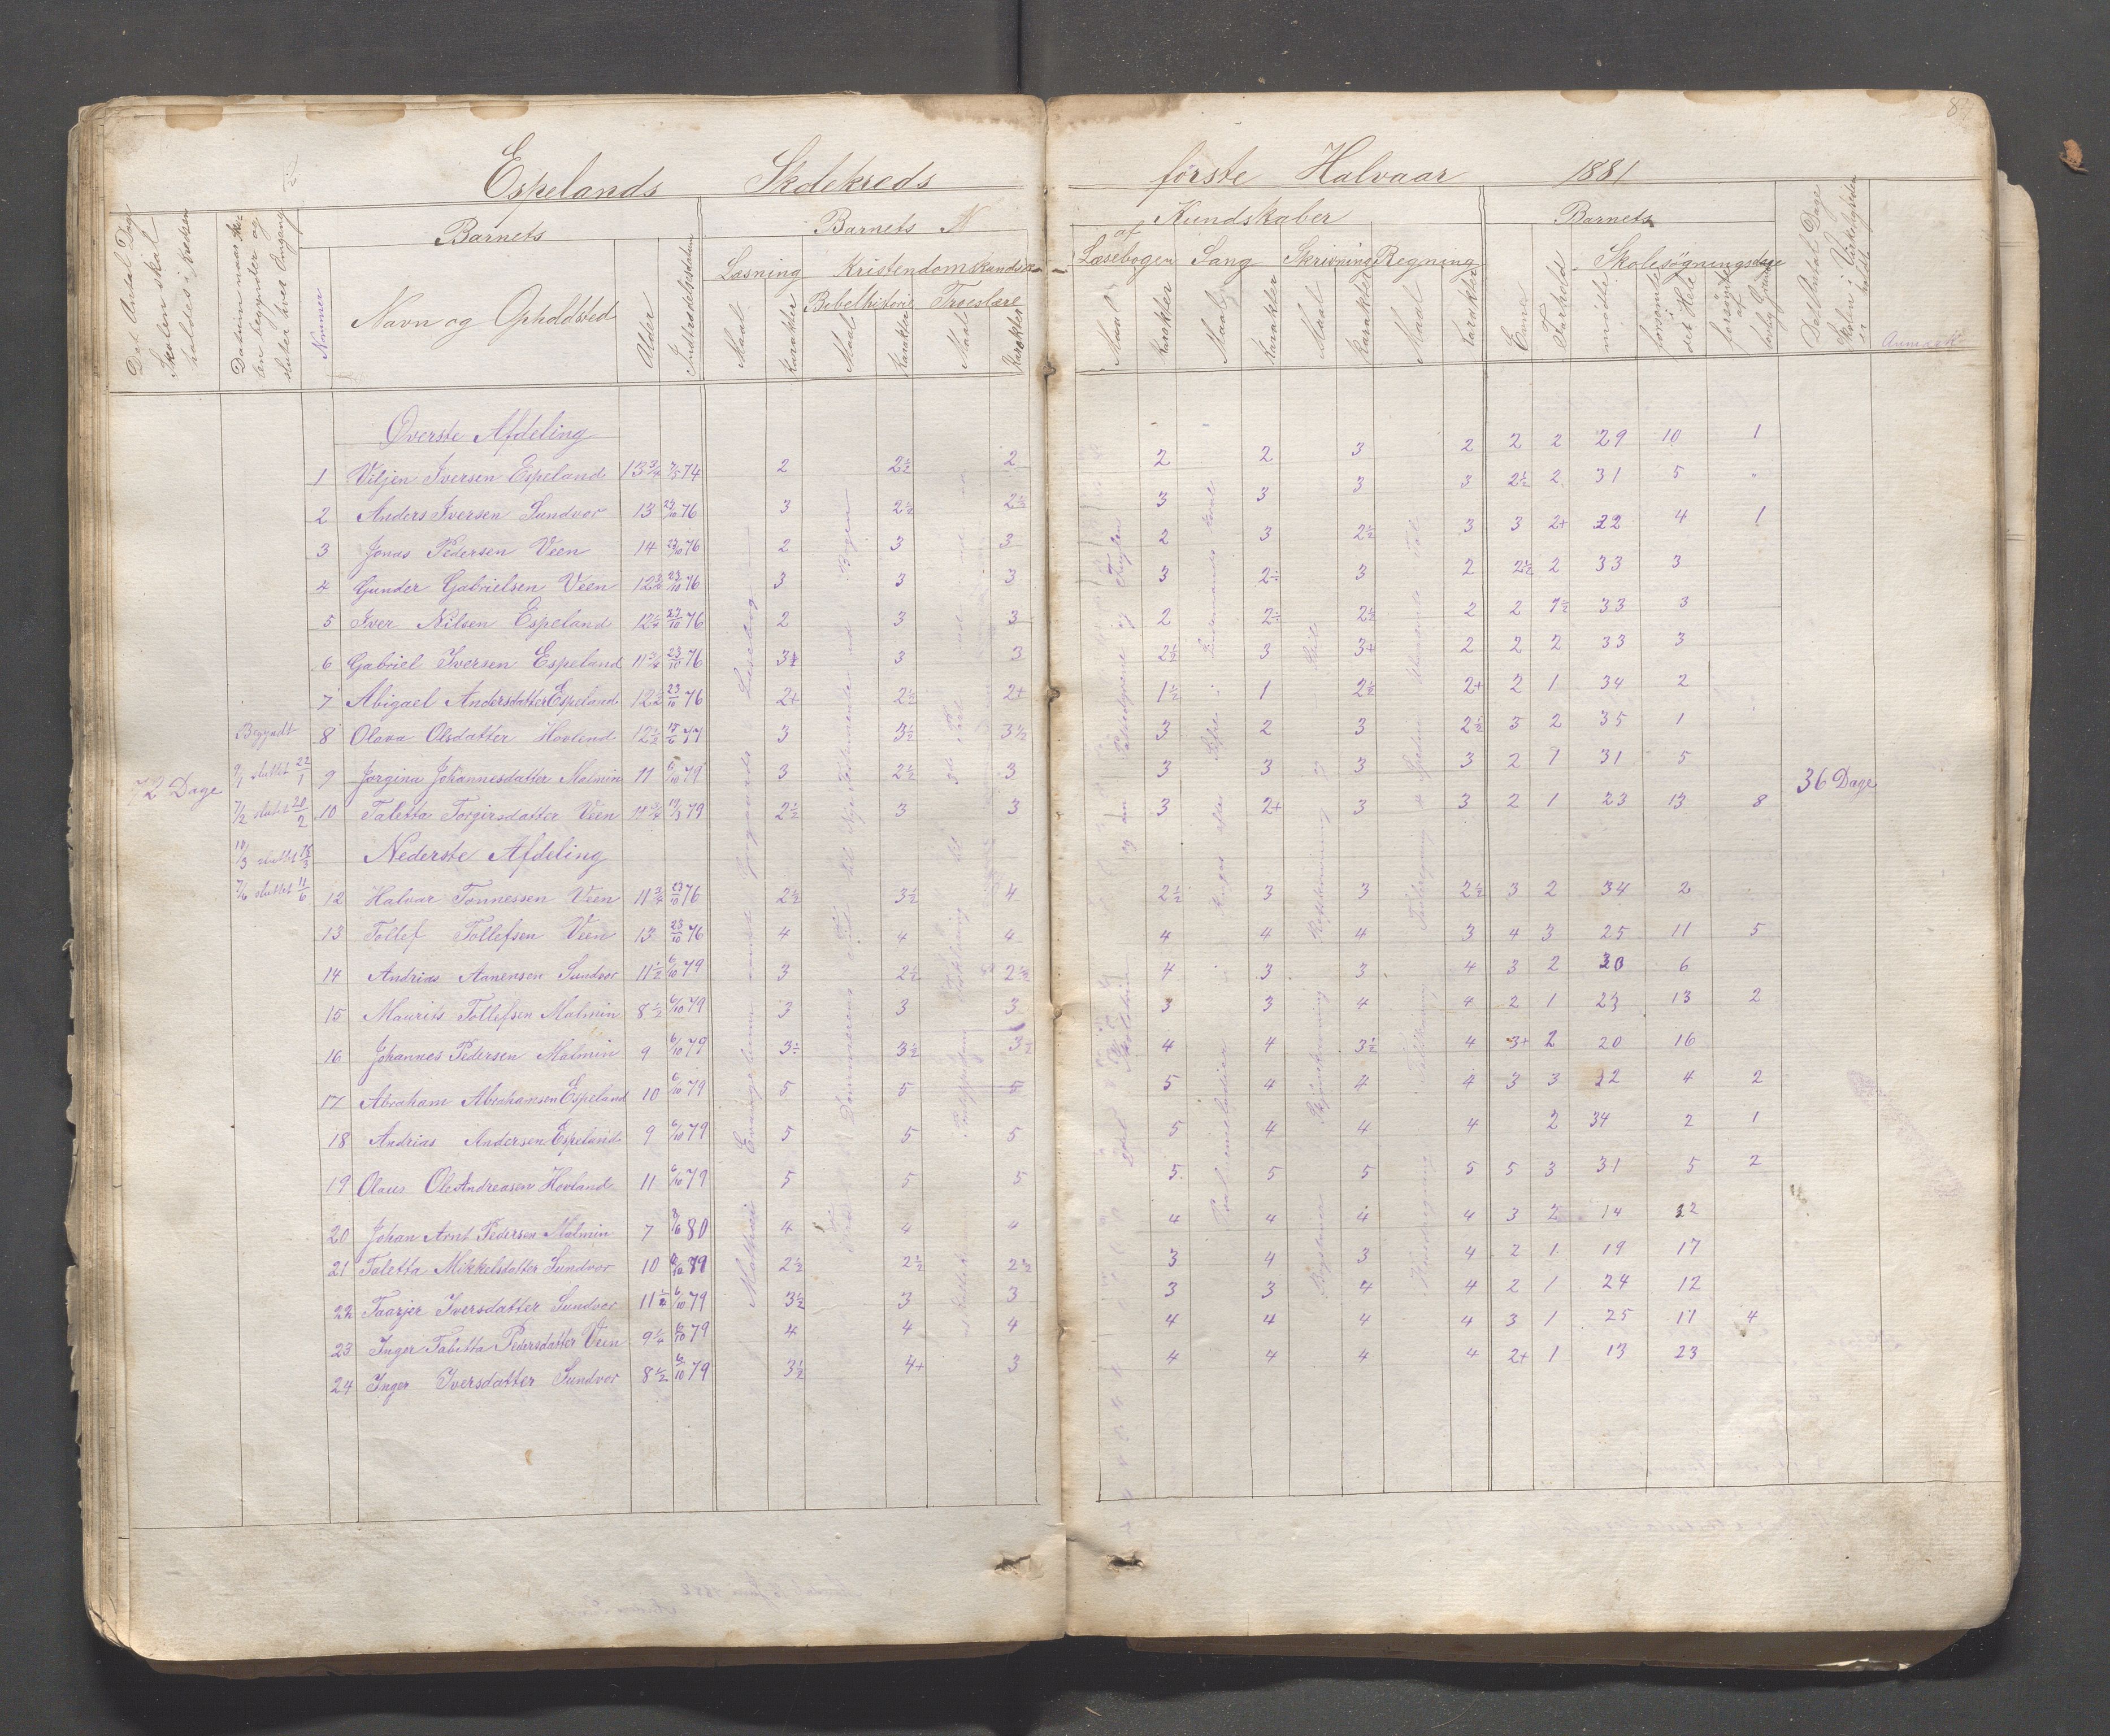 84
Espelands Skolekreds første Halvaar 1881
Det Antal Dage Skolen skal holdes i Kredsen
Datum naar Skolen begynder og slutter hver Omgang
Nummer
Barnets
Navn og Opholdsted
Alder
Indtrædelsesdatum
Barnets Kundskaber
Læsning
Kristendomskundsk.
Bibelhistorie
Troeslære
af Læsebogen
Sang
Skrivning
Regning
Maal Karakter Maal Karakter Maal Karakter
Maal Karakter Maal Karakter Maal Karakter Maal Karakter
Barnets
Evner
Forhold
Skolesøgningsdage
mødte
forsømte i det Hele
forsømte af lovlig Grund
Det Antal Dage Skolen i Virkeligheden er holdt
Anmærk
Øverste Afdeling
1 Viljen Iversen Espeland 13 3/4 7/5 74 2 2½ 2 2 2 3 2 2 2 29 10 1
2 Anders Iversen Sundvor 13 23/10 76 3 2½ 2½ 3 3 3 3 2½ 2 31 5 "
3 Jonas Pedersen Veen 14 23/10 76 2 3 3 2 3 2½ 3 3 2+ 22 4 1
4 Gunder Gabrielsen Veen 12 3/4 23/10 76 3 3 3 3 2÷ 3 2 2½ 2 33 3
5 Iver Nilsen Espeland 12 ¼ 23/10 76 2 3 3 2 2÷ 2½ 2 2 1½ 33 3
6 Gabriel Iversen Espeland 11 3/4 23/10 76 3 3 3 2½ 3 3+ 2 2 2 33 3
7 Abigael Andersdatter Espeland 12 ½ 23/10 76 2+ 2½ 2+ 1½ 1 2½ 2+ 2 1 34 2
8 Olava Olsdatter Hovland 12½ 15/6 77 3 3½ 3½ 3 2 3 2½ 3 2 35 1
9 Jorgina Johannesdatter Malmin 11 6/10 79 3 2½ 3 3 3 3 3 2 1 31 5
10 Taletta Torgirsdatter Veen 11 3/4 17/3 79 2½ 3 3 3 2+ 3 3 2 1 23 13 8
72 Dage
Begyndt
9/1 sluttet 22/1
7/2 sluttet 20/2
14/3 sluttet 26/3
7/6 sluttet 11/6
36 Dage
Nederste Afdeling
12 Halvar Tonnessen Veen 11 3/4 23/10 76 2½ 3½ 4 2½ 3 3 2½ 3 2 34 2
13 Tollef Tollefsen Veen 13 23/10 76 4 4 4 4 4 4 3 4 3 25 11 5
14 Andrias Aanensen Sundvor 11½ 6/10 79 3 2½ 2½ 4 3 3 4 3 2 30 6
15 Maurits Tollefsen Malmin 8½ 6/10 79 3 3 3 3 3 4 4 2 1 23 13 2
16 Johannes Pedersen Malmin 9 6/10 79 3÷ 3½ 3½ 4 4 3½ 4 3+ 2 20 16
17 Abraham Abrahansen Espeland 10 6/10 79 5 5 5 5 4 4 4 3 3 32 4 2
18 Andrias Andersen Espeland 9 6/10 79 5 5 5 5 4 4 4 2 34 2 1
19 Olaus OleAndreasen Hovland 11 6/10 79 5 5 5 5 5 5 5 5 3 31 5 2
20 Johan Arnt Pedersen Malmin 7 80 4 4 4 4 4 4 4 3 2 14 22
21 Taletta Mikkelsdatter Sundvor 10 6/10 79 2½ 2½ 2½ 3 4 3 4 2 1 19 17
22 Taarjer Iversdatter Sundvor 11½ 6/10 79 3½ 3 3 3 3 4 4 2 1 24 12
23 Inger Tabitta Pedersdatter Veen 9¼ 6/10 79 4 4 4 4 4 4 4 3 1 25 11 4
24 Inger Iversdatter Sundvor 8½ 6/10 79 3½ 4+ 3 4 4 4 4 2+ 1 13 23